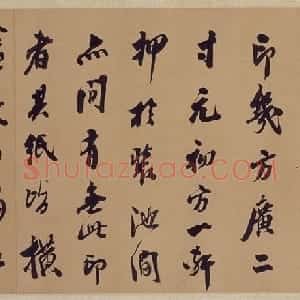 印幾方廣二
寸元初方一軒
押於裝池間
亦間有無此印
者其紙皆橫
shufazidian.com